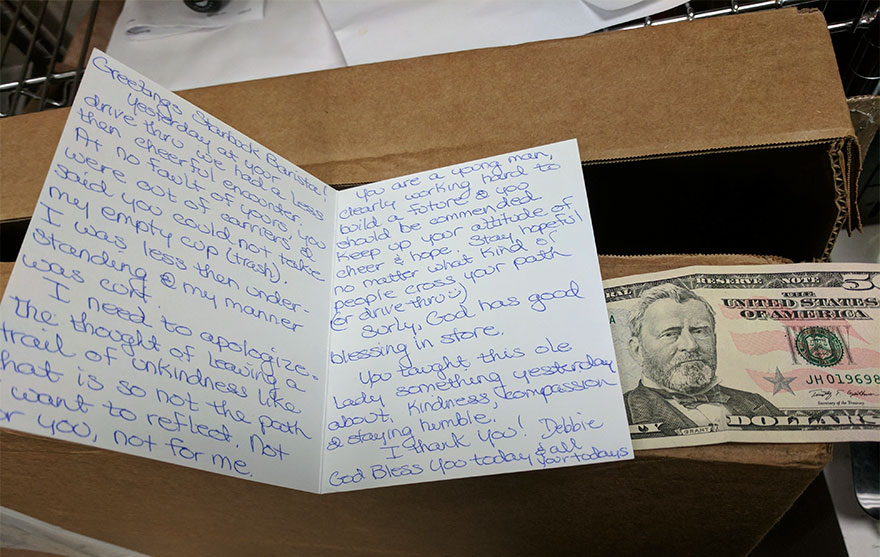 Greetings Starbock Barista!
Yesterday at your
drive thru we had a less
then cheerful encounter.
At no fault of yours, you
were out of carriers &
said you could not take
my empty cup (trash).
I was less then under-
standing & my manner
was curt.
I need to apologize-
the thought of leaving a
trail of unkindness like
that is so not the path
I want to reflect. Not
for you, not for me.
You are a young man,
clearly working hard to
build a future & you
should be commended.
Keep up your attitude of
cheer & hope. Stay hopeful
no matter what kind of
people cross your path
(or drive thru :)
Surly, God has good
blessing in store.
You taught this ole
lady something yesterday
about, kindness, compassion
& staying humble.
I thank you! Debbie
God Bless you today & all
your todays
RESERVE NOTE
50
THE
UNITED STATES
OF AMERICA
JH019698
Secretary of the Treasury
GRANT
DOLLARS